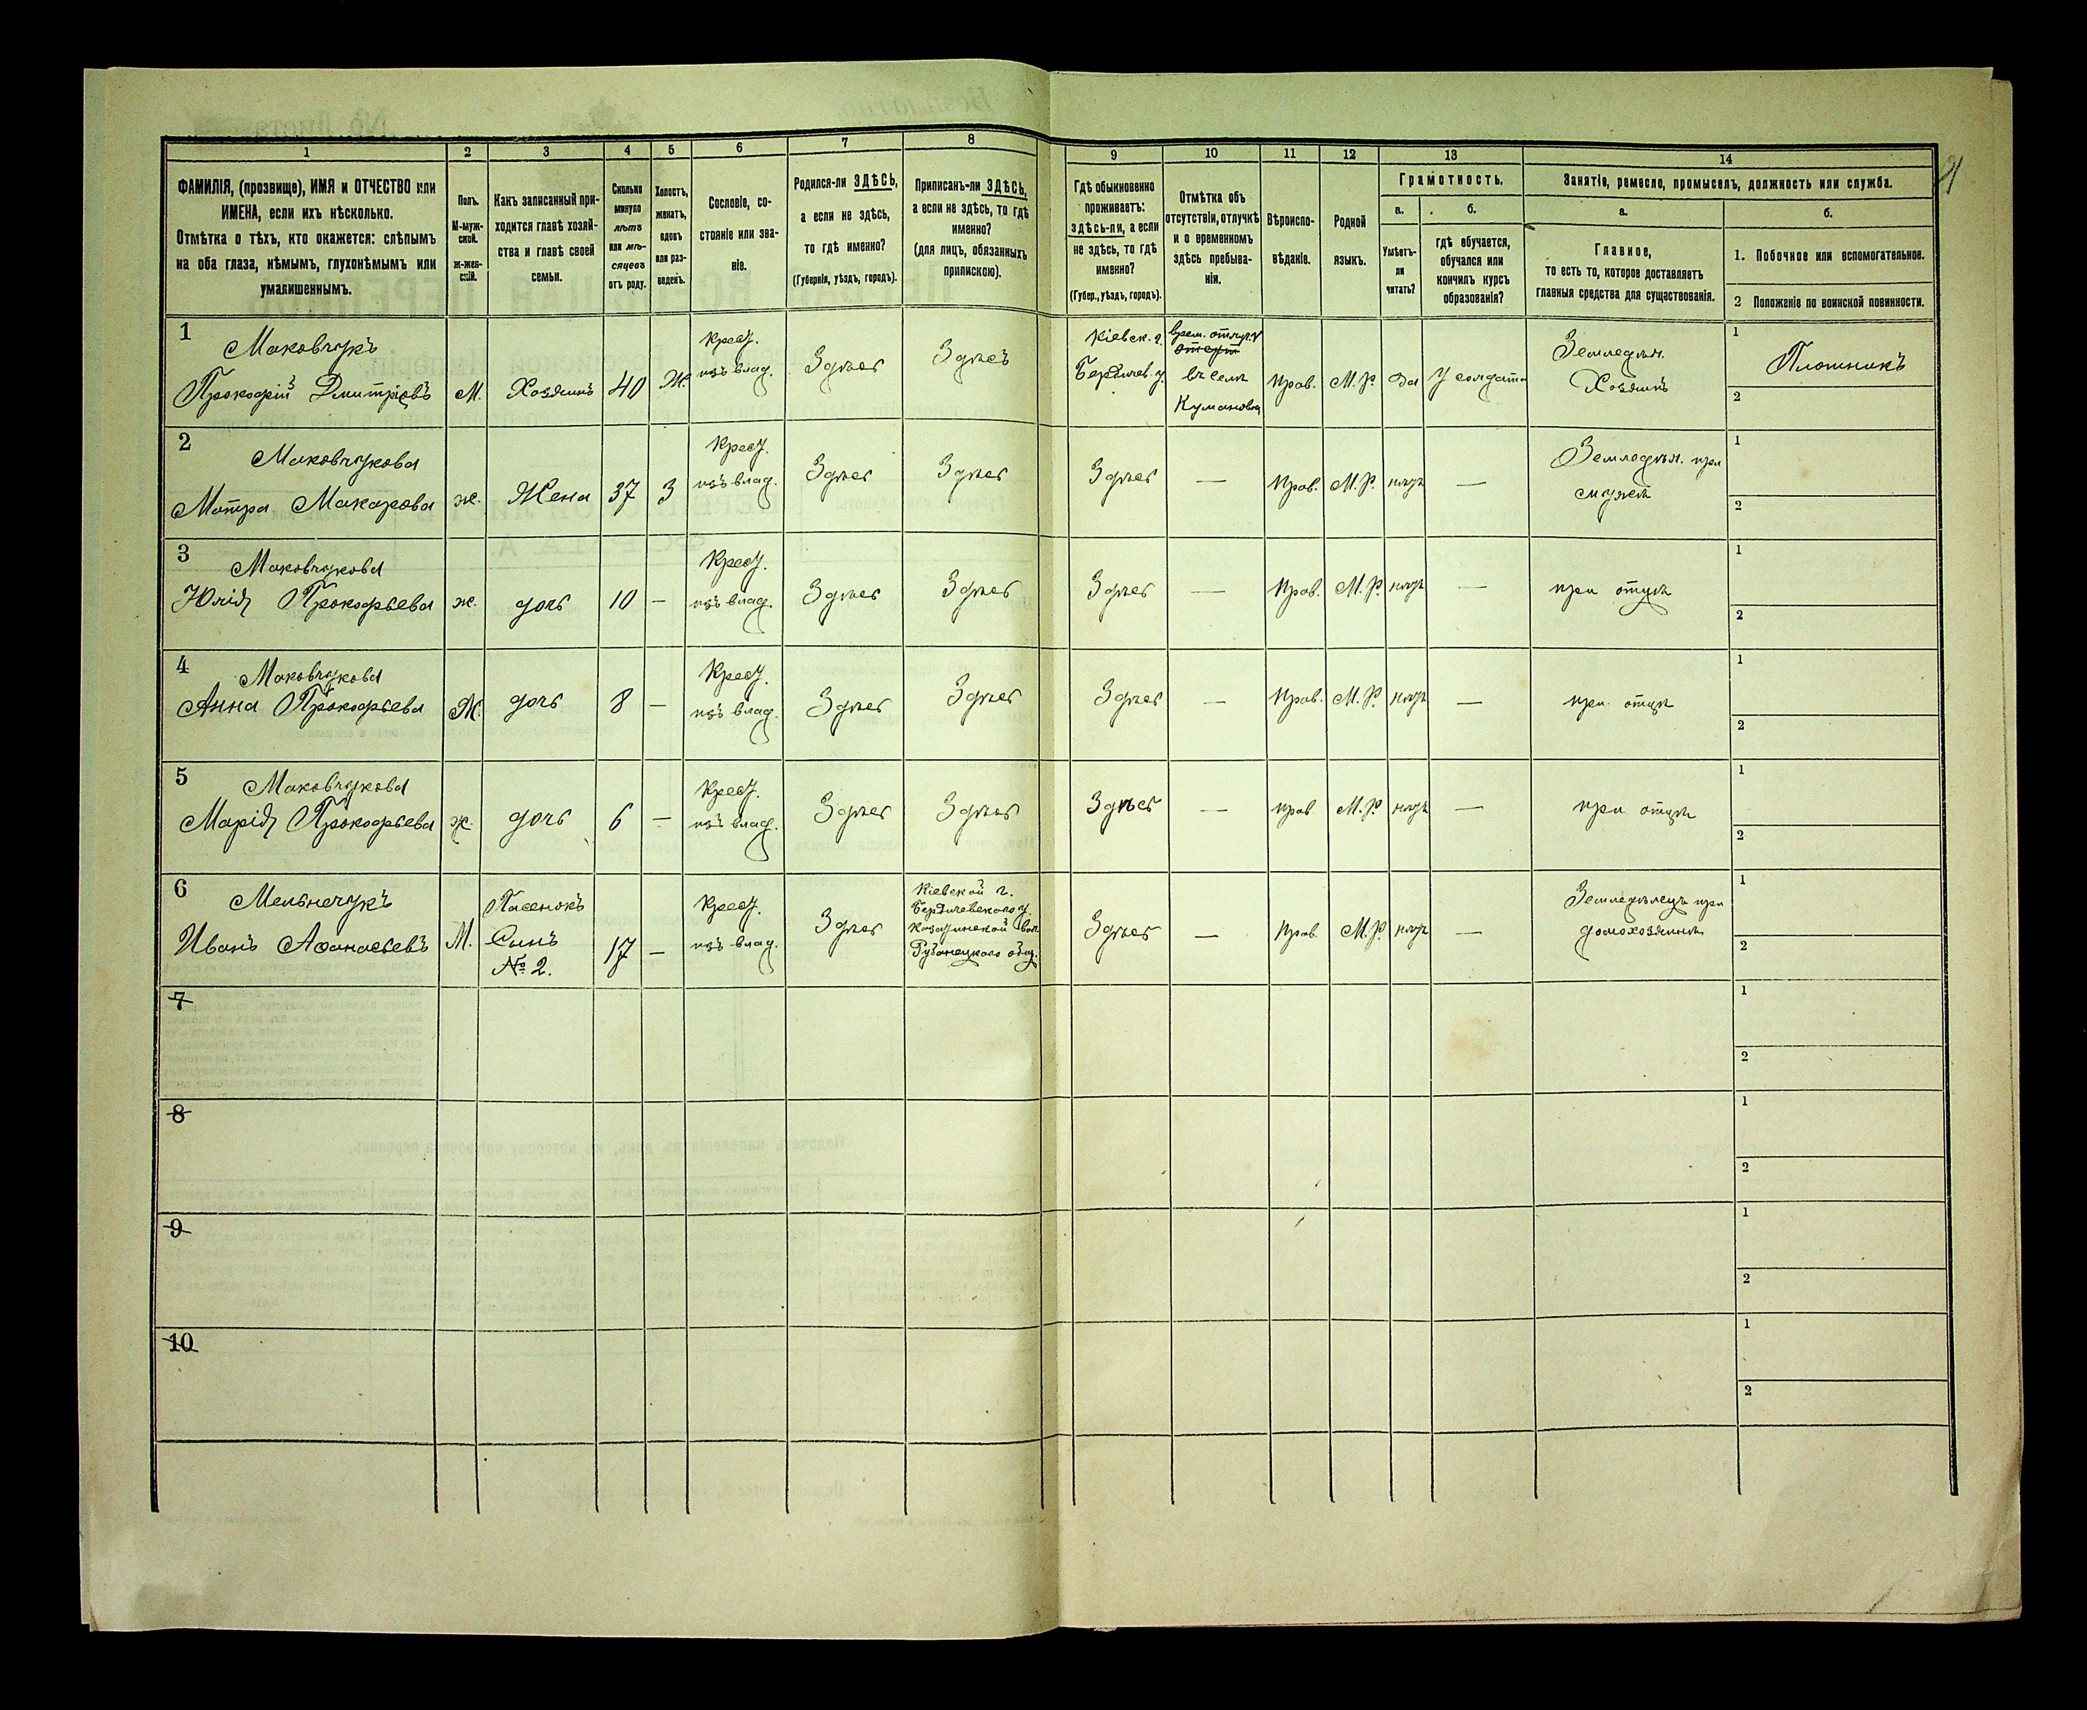 1 2 3 4 5 6 7 8 9 10 11 12 13 14
ФАМИЛІЯ, (прозвище), ИМЯ и ОТЧЕСТВО или
ИМЕНА, если ихъ нѣсколько.
Отмѣтка о тѣхъ, кто окажется: слѣпымъ
на оба глаза, нѣмымъ, глухонѣмымъ или
умалишеннымъ.
Полъ.
М-муж-
ской.
ж-жен-
скій.
Какъ записанный при-
ходится главѣ хозяй-
ства и главѣ своей
семьи.
Сколько
минуло
лѣтъ
или мѣ-
сяцевъ
отъ роду.
Холостъ,
женатъ,
вдовъ
или раз-
веденъ.
Сословіе, со-
стояніе или зва-
ніе.
Родился-ли ЗДѢСЬ,
а если не здѣсь,
то гдѣ именно?
(Губернія, уѣздъ, городъ).
Приписанъ-ли ЗДѢСЬ,
а если не здѣсь, то гдѣ
именно?
(для лицъ, обязанныхъ
припискою).
Гдѣ обыкновенно
проживаетъ:
здѣсь-ли, а если
не здѣсь, то гдѣ
именно?
(Губер., уѣздъ, городъ).
Отмѣтка объ
отсутствіи, отлучкѣ
и о временномъ
здѣсь пребыва-
ніи.
Вѣроиспо-
вѣданіе.
Родной
языкъ.
Грамотность.
а.
Умѣетъ-
ли
читать?
б.
гдѣ обучается,
обучался или
кончилъ курсъ
образованія?
Занятіе, ремесло, промыселъ, должность или служба.
а.
Главное,
то есть то, которое доставляетъ
главныя средства для существованія.
б.
1. Побочное или вспомогательное.
2 Положеніе по воинской повинности.
1
Маковчукъ
Прокофій Дмитріевъ
М.
Хозяинъ
40
Ж.
Крест.
изъ влад.
Здѣсь
Здѣсь
Кіевск. г.
Бердичев. у.
врем.
въ селѣ
Кумановка
Прав.
М. Р.
да
У солдата
Земледѣл.
Хозяинъ
1
Плотникъ
2
2
Маковчукова
Мотря Макарова
ж.
Жена
37
З
Крест.
изъ влад.
Здѣсь
Здѣсь
Здѣсь
—
Прав.
М. Р.
нѣтъ
—
Земледѣл. при
мужѣ
1
2
3
Маковчукова
Юлія Прокофьева
ж.
дочь
10
—
Крест.
изъ влад.
Здѣсь
Здѣсь
Здѣсь
—
Прав.
М. Р.
нѣтъ
—
при отцѣ
1
2
4
Маковчукова
Анна Прокофьева
Ж.
дочь
8
—
Крест.
изъ влад.
Здѣсь
Здѣсь
Здѣсь
—
Прав.
М. Р.
нѣтъ
—
при отцѣ
1
2
5
Маковчукова
Марія Прокофьева
ж.
дочь
6
—
Крест.
изъ влад.
Здѣсь
Здѣсь
Здѣсь
—
прав
М. Р.
нѣтъ
—
при отцѣ
1
2
6
Мельнечукъ
Иванъ Афанасьевъ
М.
Пасенокъ
Сынъ
№ 2.
17
—
Крест.
изъ влад.
Здѣсь
Кіевской г.
Бердичевскаго у.
Казатинской вол
общ.
Здѣсь
—
Прав.
М. Р.
нѣтъ
—
Земледѣлецъ при
домохозяинѣ
1
2
7
1
2
8
1
2
9
1
2
10
1
2